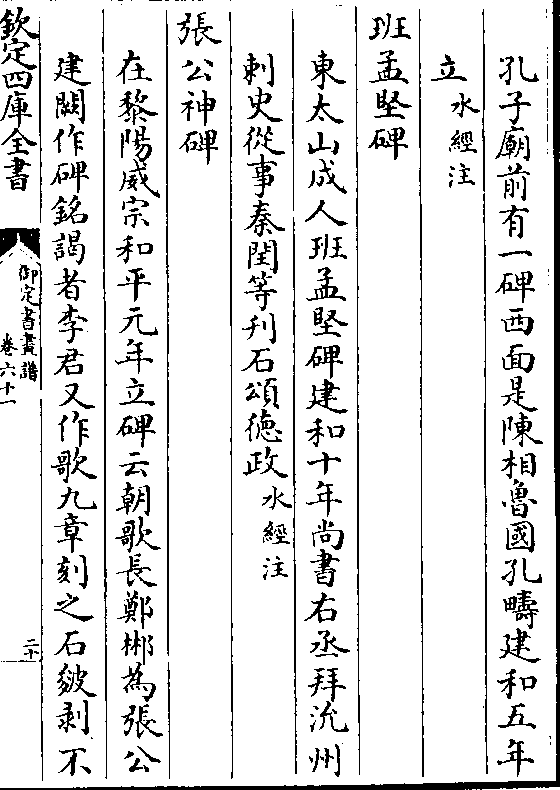 孔子廟前有一碑西面是陳相魯國孔疇建和五年
立水經注
班孟堅碑
東太山成人班孟堅碑建和十年尚書右丞拜沇州
刺史從事秦閏等刋石頌徳政水經注
張公神碑
在黎陽威宗和平元年立碑云朝歌長鄭郴為張公
建闕作碑銘謁者李君又作歌九章刻之石皴剥不
欽定四庫全書
御定書畫譜
卷六十一
二十